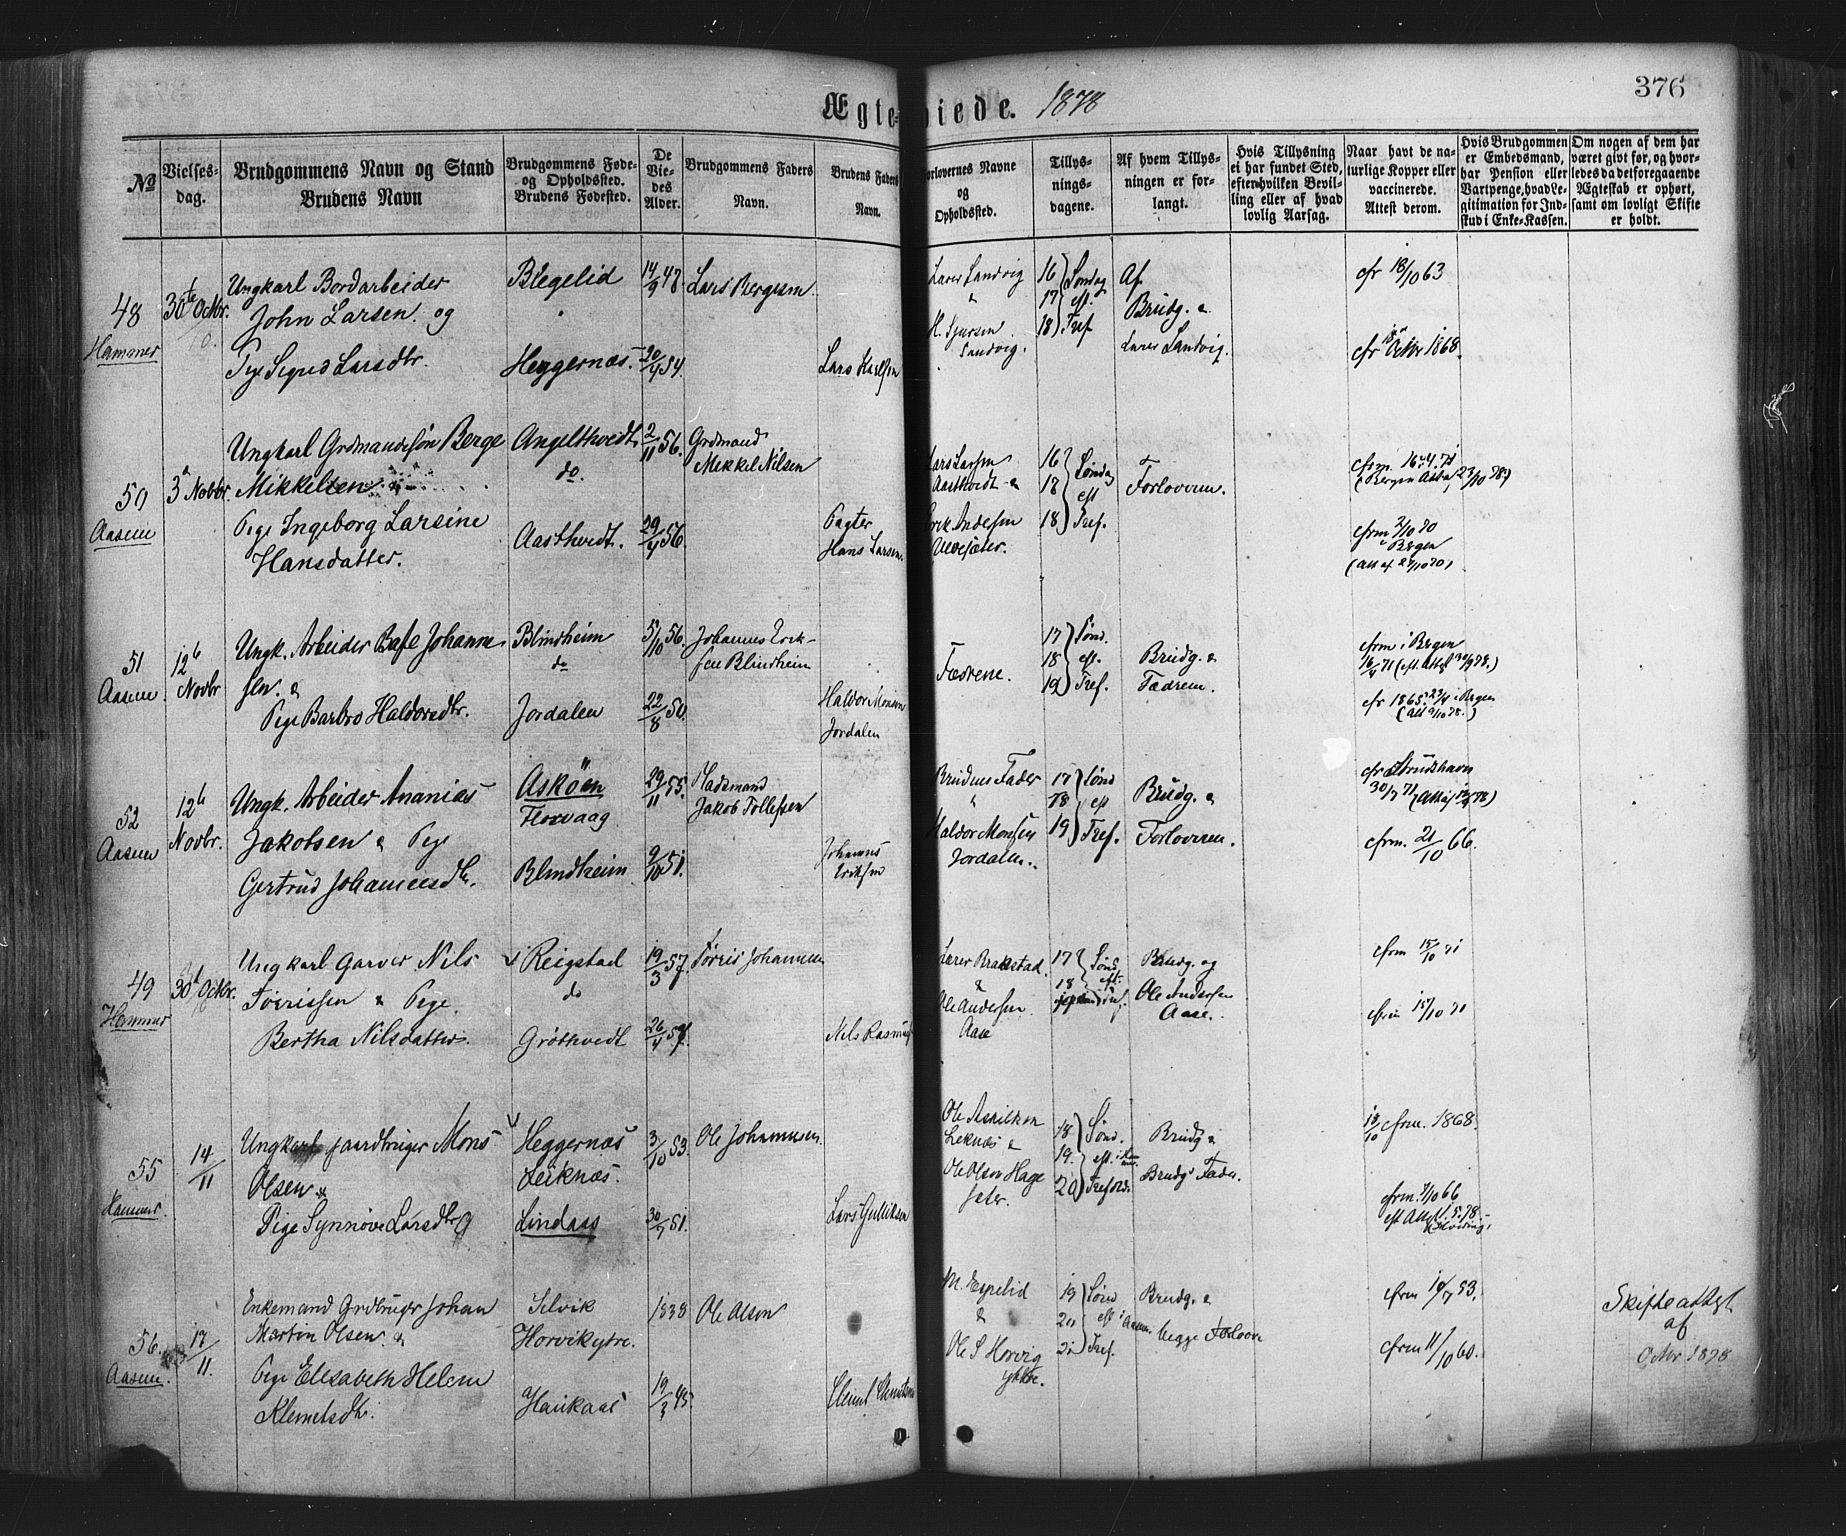 376
Ægteviede. 1878
No
Vielses-
dag.
Brudgommens Navn og Stand
Brudens Navn
Brudgommens Føde-
og Opholdssted.
Brudens Fødested.
De
Vie-
des
Alder.
Brudgommens Faders
Navn.
Brudens Faders
Navn.
Forlovernes Navne
og
Opholdssted.
Tillys-
nings-
dagene.
Af hvem Tillys-
ningen er for-
langt.
Hvis Tillysning
ei har fundet Sted,
efter hvilken Bevil-
ling eller af hvad
lovlig Aarsag.
Naar havt de na-
turlige Kopper eller
vaccinerede.
Attest derom.
Hvis Brudgommen
er Embedsmand,
har Pension eller
Vartpenge, hvad Le-
gitimation for Ind-
skud i Enke-Kassen.
Om nogen af dem har
været givt før, og hvor-
ledes da det foregaaende
Ægteskab er ophørt,
samt om lovligt Skifte
er holdt.
48
Hammer
30te Octbr.
Ungkarl Bordarbeider
John Larsen og
Pige Sigrid Larsdtr.
Blegelid
Heggernæs
14/9 48
20/4 54.
Lars Bergesen
Lars Karlsen
Lærer Sandvig
&
Sandvig.
16
17
18
Søndag
eft.
Tref
Af
Brudg. &
Lærer Sandvig.
cfr 18/10 63
cfr Octbr 1868.
50
Aasene
3 Novbr.
Ungkarl Grdmandssøn Berge
Mikkelsen &
Pige Ingeborg Larsine
Hansdatter.
Angelthvedt
do
Aasthvedt.
2/11 56.
29/4 56.
Grdmand
Mikkel Nilsen
Hans Larsen
Lars Larsen
Aasthvedt &
16
18
18
Søndag
eft
Tref.
Forloveren.
cfrm 16/4 71
(Bergen Attest 23/10 78)
cfrm 2/10 70
Bergen
51
Aasene
12te
Novbr
Ungk. Arbeider Base Johanne-
sen. &
Pige Barbro Haldorsdtr.
Blindheim
do
Jordalen
5/10 56.
22/8 50.
Johannes Erik-
sen Blindheim
Haldor Monsen
Jordalen
Fædrene.
17
18
19
Sønd.
eft.
Tref.
Brudg. &
Fædrene.
cfrm i Bergen
52
Aasene
12te
Novbr.
Ungk. Arbeider Ananias
Jakobsen & Pige
Gertrud Johannesdtr.
Askøen
Florvaag
Blindheim
29/11 55.
9/10 51.
Jakob Tollefsen
Johannes
Eriksen
Brudens Fader
&
Haldor Monsen
Jordalen.
17
18
19
Sønd
eft
Tref.
Brudg. &
Forloveren.
cfrm. 21/10 66.
49
Hammer
30te Octbr.
Ungkarl Garver Nils
Tørrissen & Pige
Bertha Nilsdatter.
Reigstad
do
Grøthvedt
19/3 57
26/4 57.
Tørris Johannesen
Nils Rasmus
Lærer Brakstad
&
Ole Andersen
Aase
17
18
Sønd
eft.
Brudg. og
Ole Andersen
Aase.
cfrm 15/10 71
cfrm 15/10 71
55
Hammer.
14/11
Ungkarl Gaardbruger Mons
Olsen &
Pige Synnøve Larsdtr
Heggernæs
Leiknæs.
Lindaas
3/10 53.
30/7 51.
Ole Johannesen
Lars Gulliksen
Ole Askildsen
Leknæs &
Ole Olsen Hage
sæter.
18
19.
20
Sønd.
eft.
Brudg &
Brudgs Fader.
13/10 cfrm. 1868.
56.
Aasene.
17/11.
Enkemand Grdbruger Johan
Martin Olsen &
Pige Elisabeth Helene
Klemetsdtr.
Selvik
Horvikytre.
Haukaas
1838
19/3 45
Ole Olson
&
Ole S Horvig
ytre.
19
20
21
Sønd
eft
Tref.
Brudg. &
begge Forlovere
cfrm 10/7 53.
cfrm 11/10 60.
Skifteattest
af
Octbr 1878